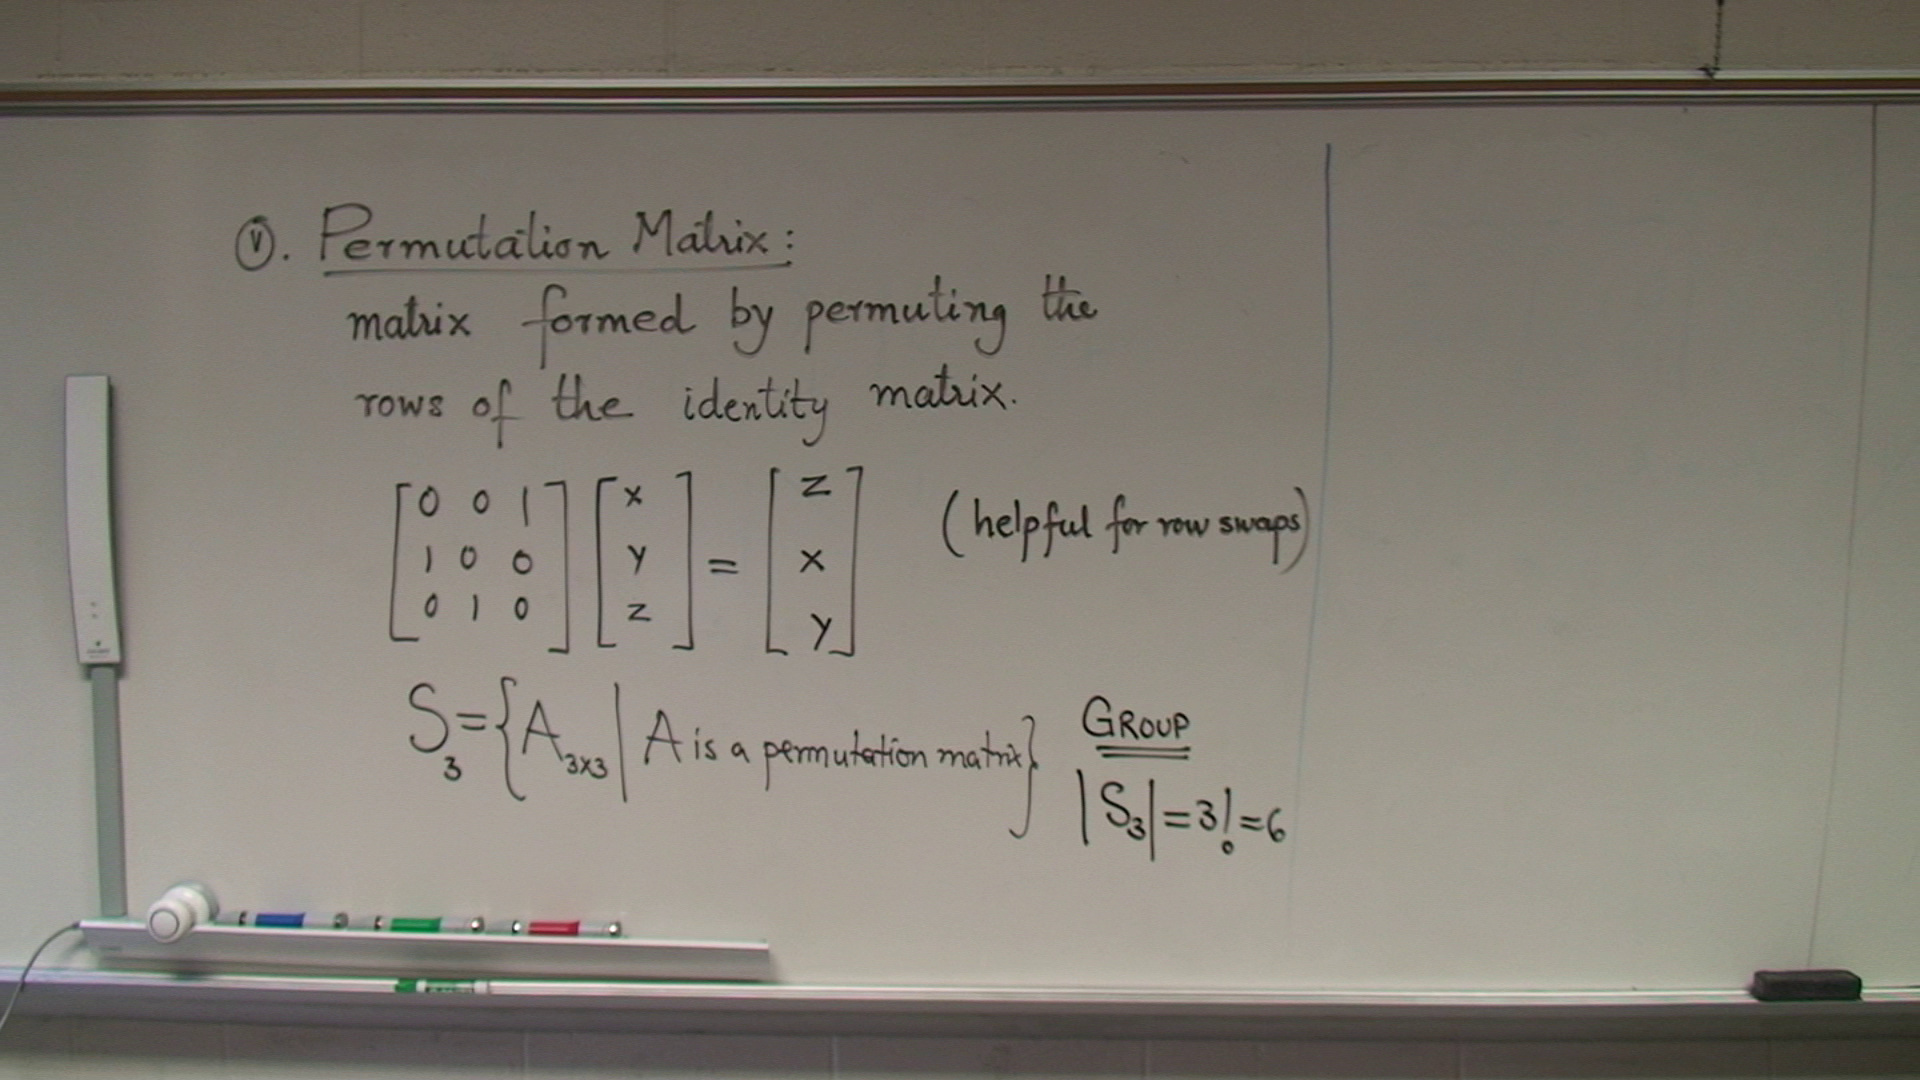 (V). Permutation Matrix:
matrix formed by permuting the
rows of the identity matrix.
[0 0 1; 1 0 0; 0 1 0] [x; y; z] = [z; x; y] (helpful for row swaps)
S₃ = {A₃ₓ₃ | A is a permutation matrix} GROUP
|S₃| = 3! = 6